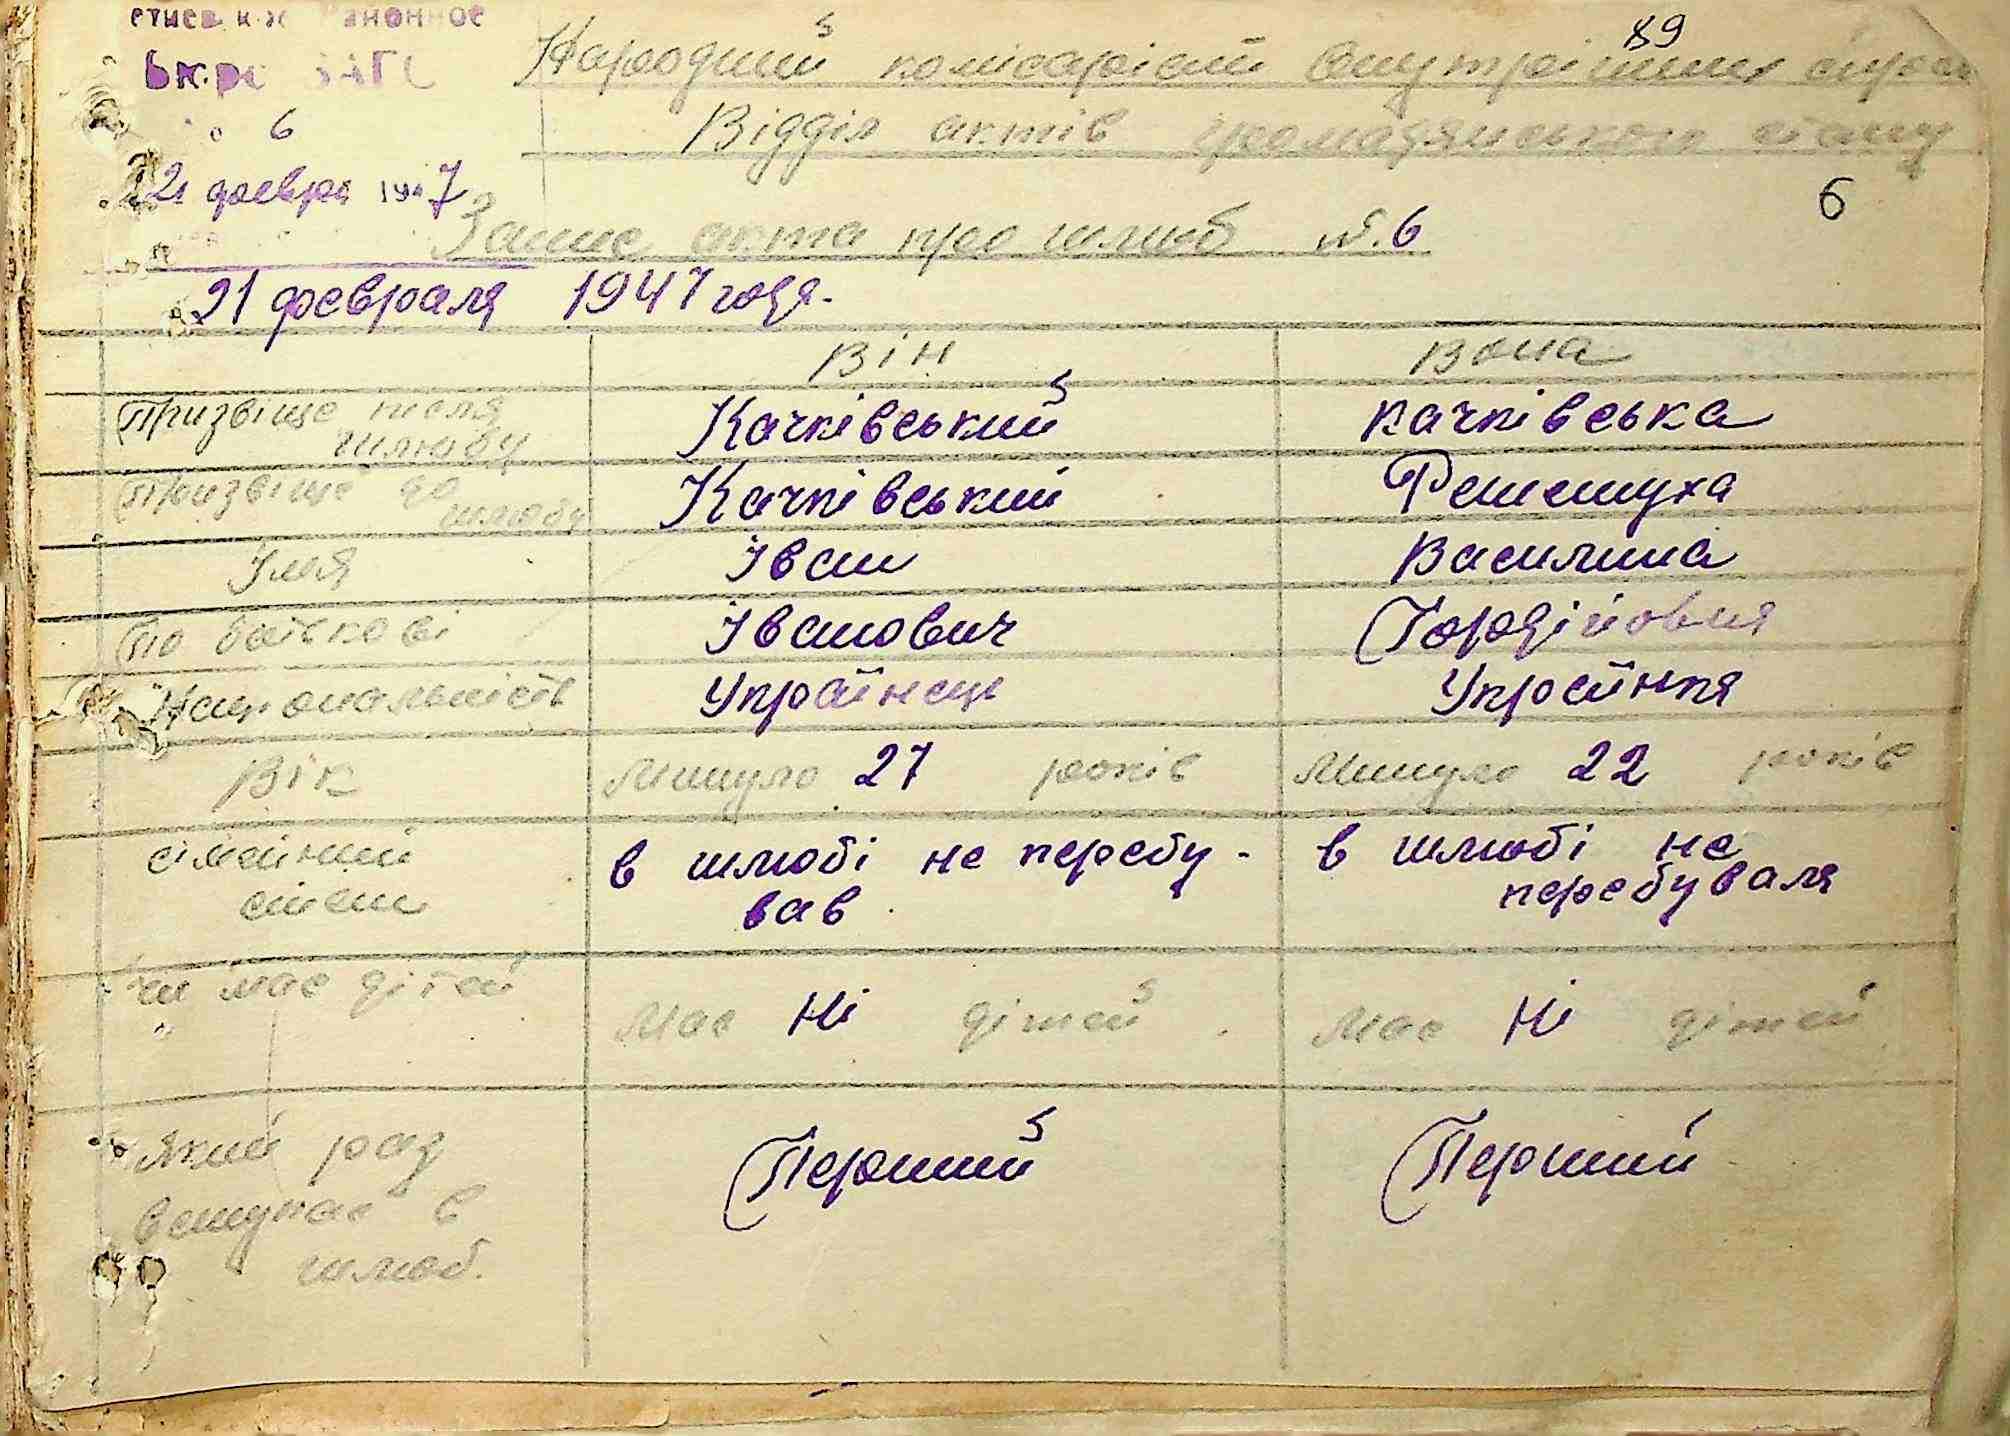 Районное
Бюро ЗАГС
89
Народний комісаріат внутрішніх справ
Відділ актів громадянського стану
6
21 февра 1947
6
Запис акта про шлюб №.6
21 февраля 1947 года.
Він Вона
Призвіще після шлюбу Качківський Качківська
Призвіще до шлюбу Качківський Решетуха
Імя Іван Василина
По батькові Іванович Гордійовня
Національність Українець Українка
Вік Минуло 27 років Минуло 22 років
сімейний в шлюбі не перебу- в шлюбі не
стан вав перебуваля
Чи має дітей
Має Ні дітей Має Ні дітей
Який раз Перший Перший
вступає в
шлюб.